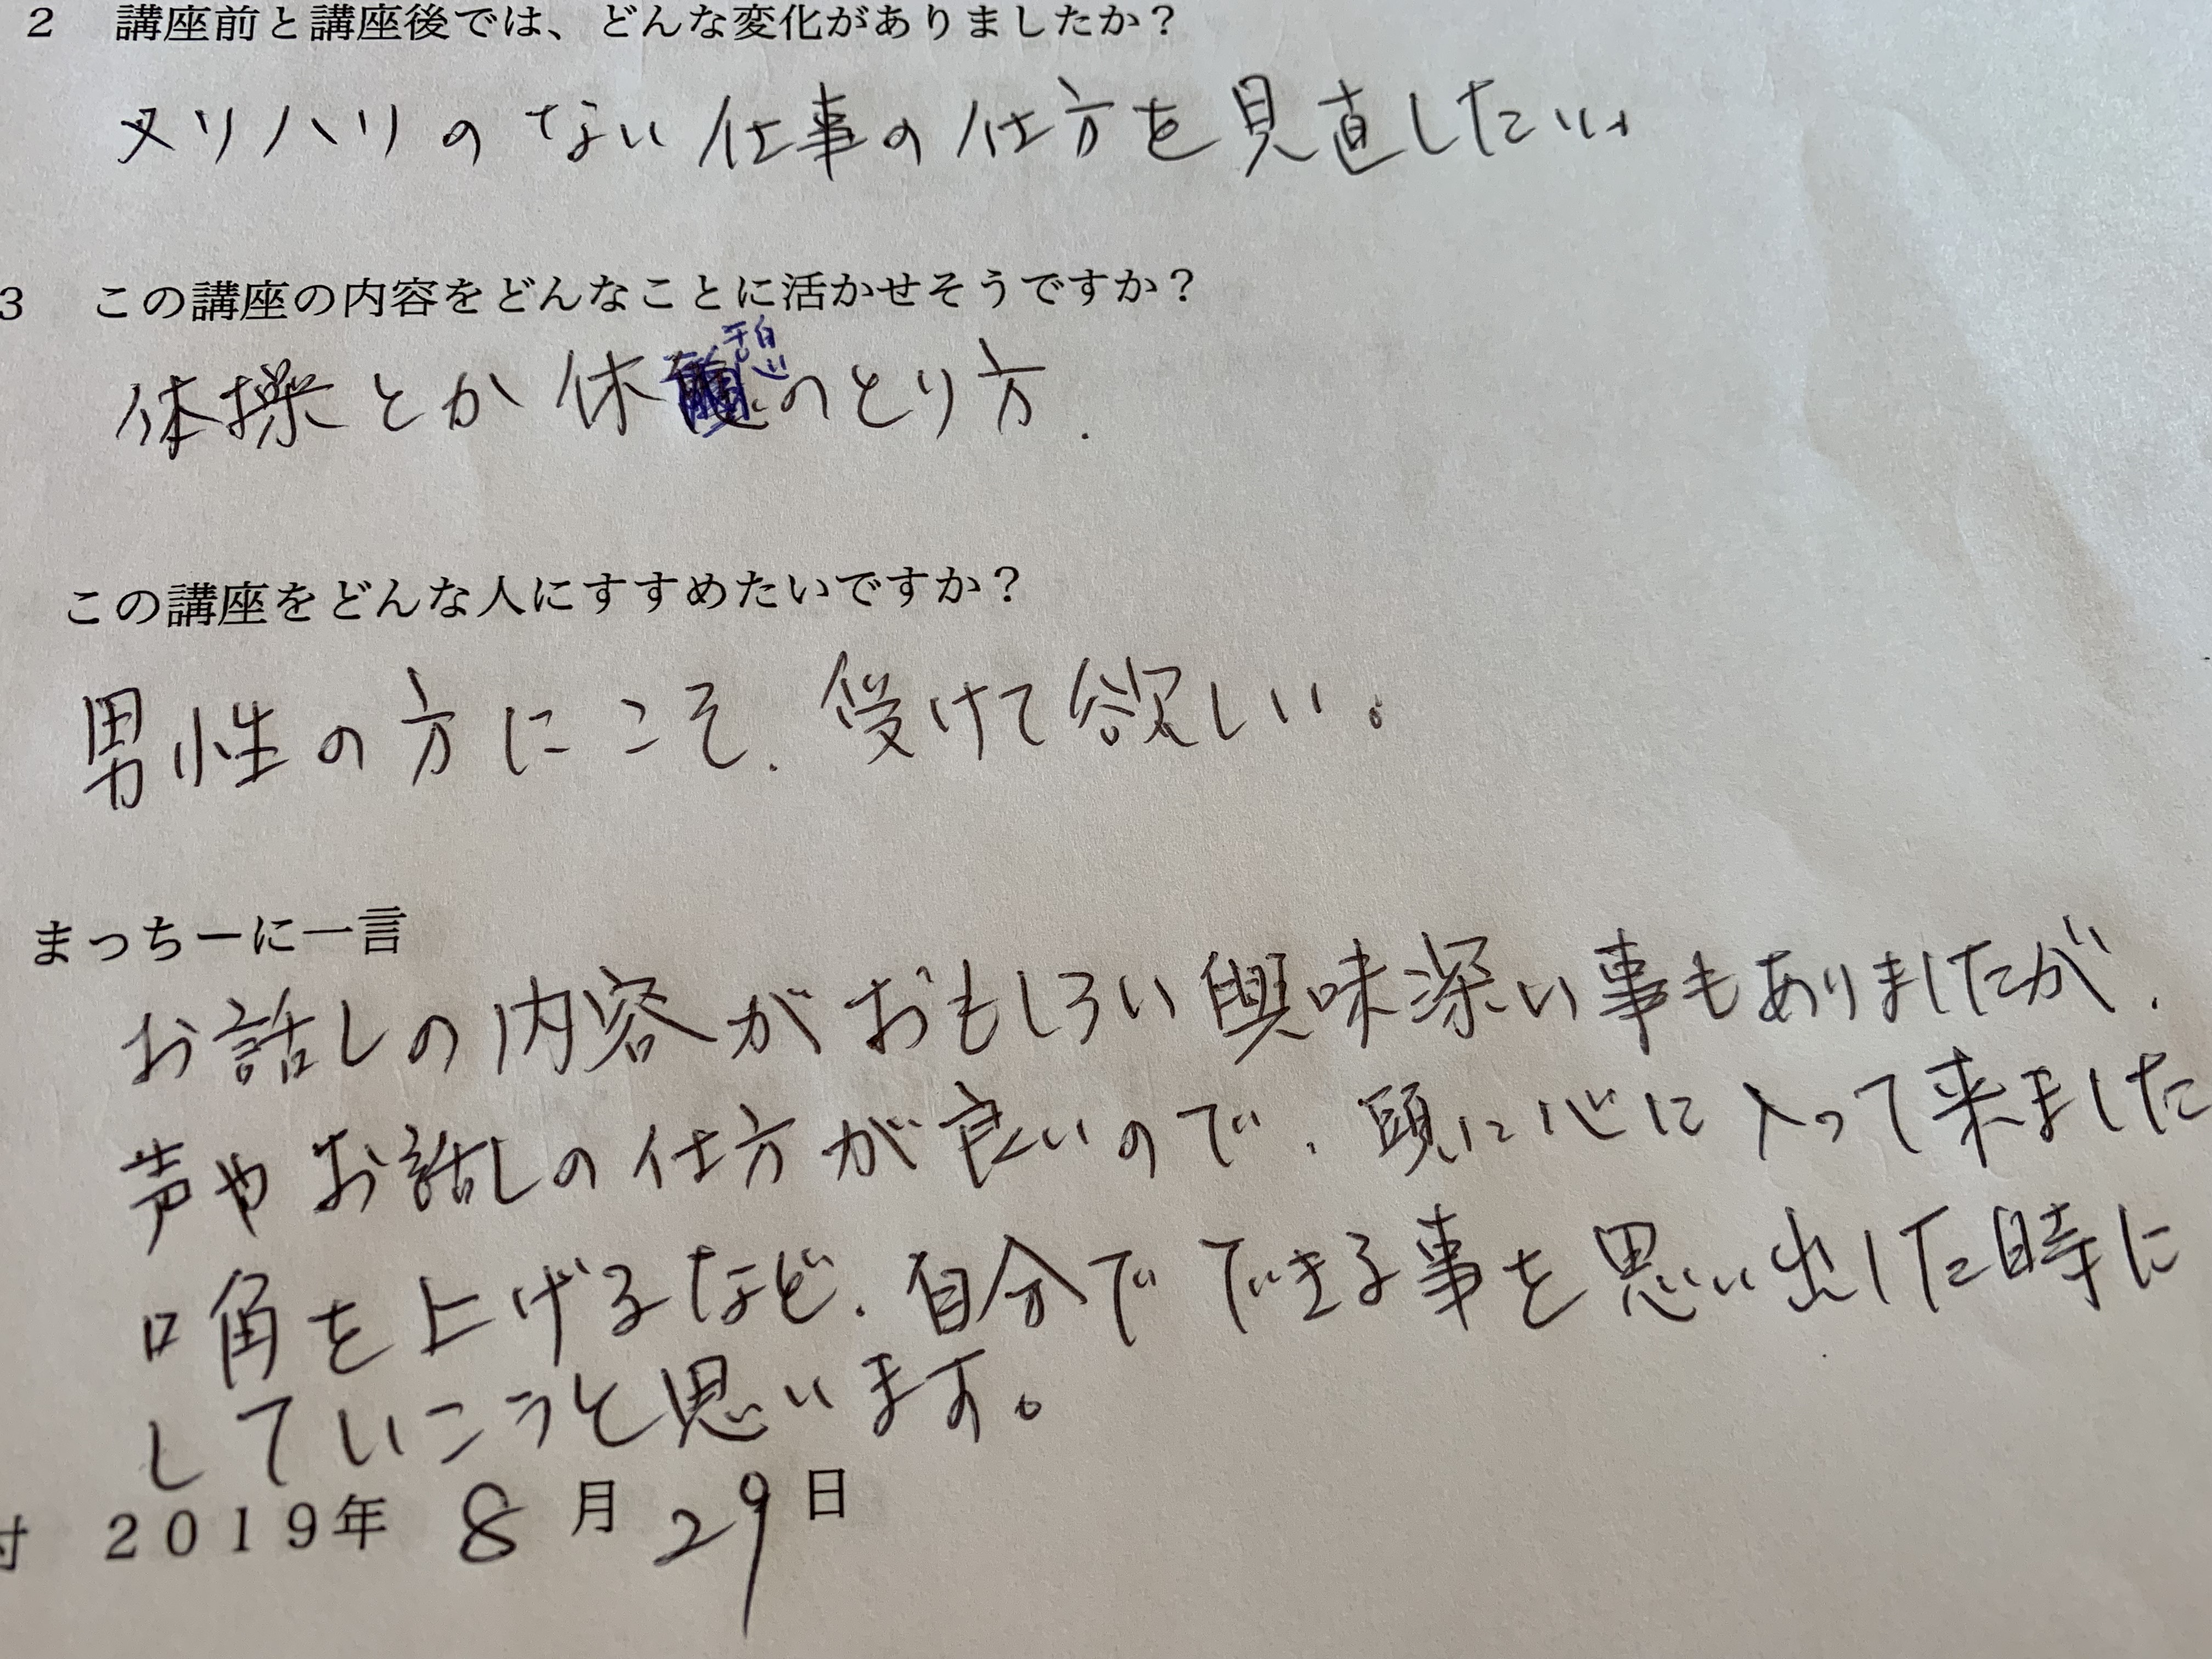 2 講座前と講座後では、どんな変化がありましたか？
メリハリのない仕事の仕方を見直したい。
3 この講座の内容をどんなことに活かせそうですか？
体操とか休憩のとり方.
この講座をどんな人にすすめたいですか？
男性の方にこそ、受けて欲しい。
まっちーに一言
お話しの内容がおもしろい興味深い事もありましたが、
声やお話しの仕方が良いので、頭に心に入って来ました
口角を上げるなど、自分でできる事を思い出した時に
していこうと思います。
付 2019年 8月 29日